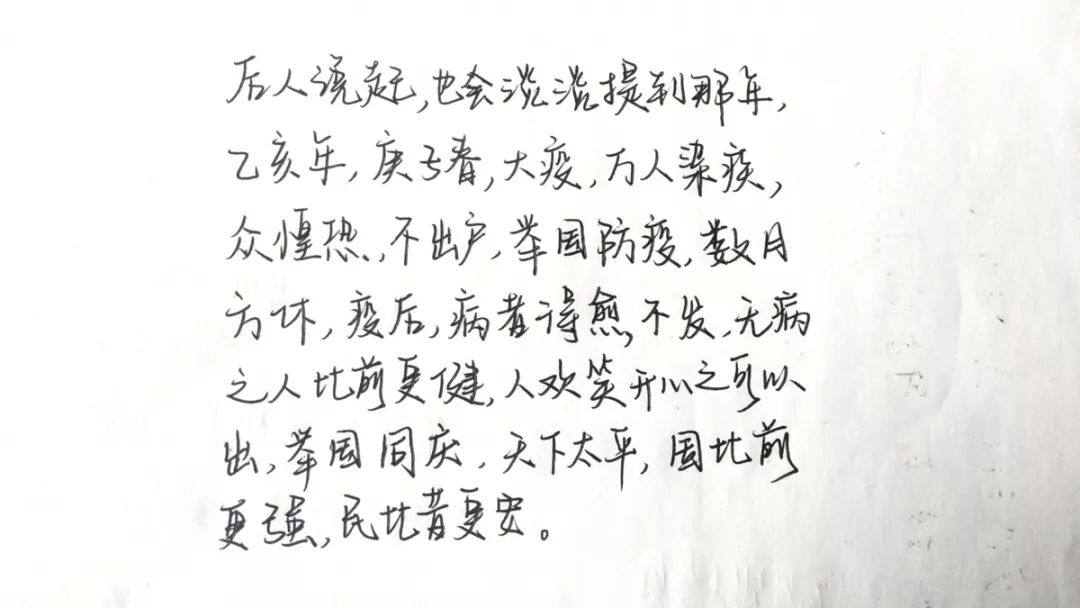 后人说起,也会淡淡提到那年,
乙亥年,庚子春,大疫,万人染疾,
众惶恐,不出户,举国防疫,数月
方休,疫后,病者得愈,不发,无病
之人比前更健,人欢笑开心之可以
出,举国同庆,天下太平,国比前
更强,民比昔更安。